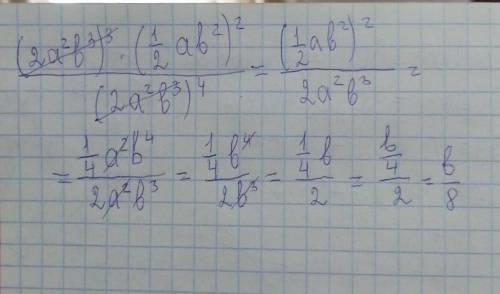 (2a²b³)³ · (½ab²)² / (2a²b³)⁴ = (½ab²)² / 2a²b³ =
= ¼a²b⁴ / 2a²b³ = ¼b⁴ / 2b³ = ¼b / 2 = b/4 / 2 = b/8